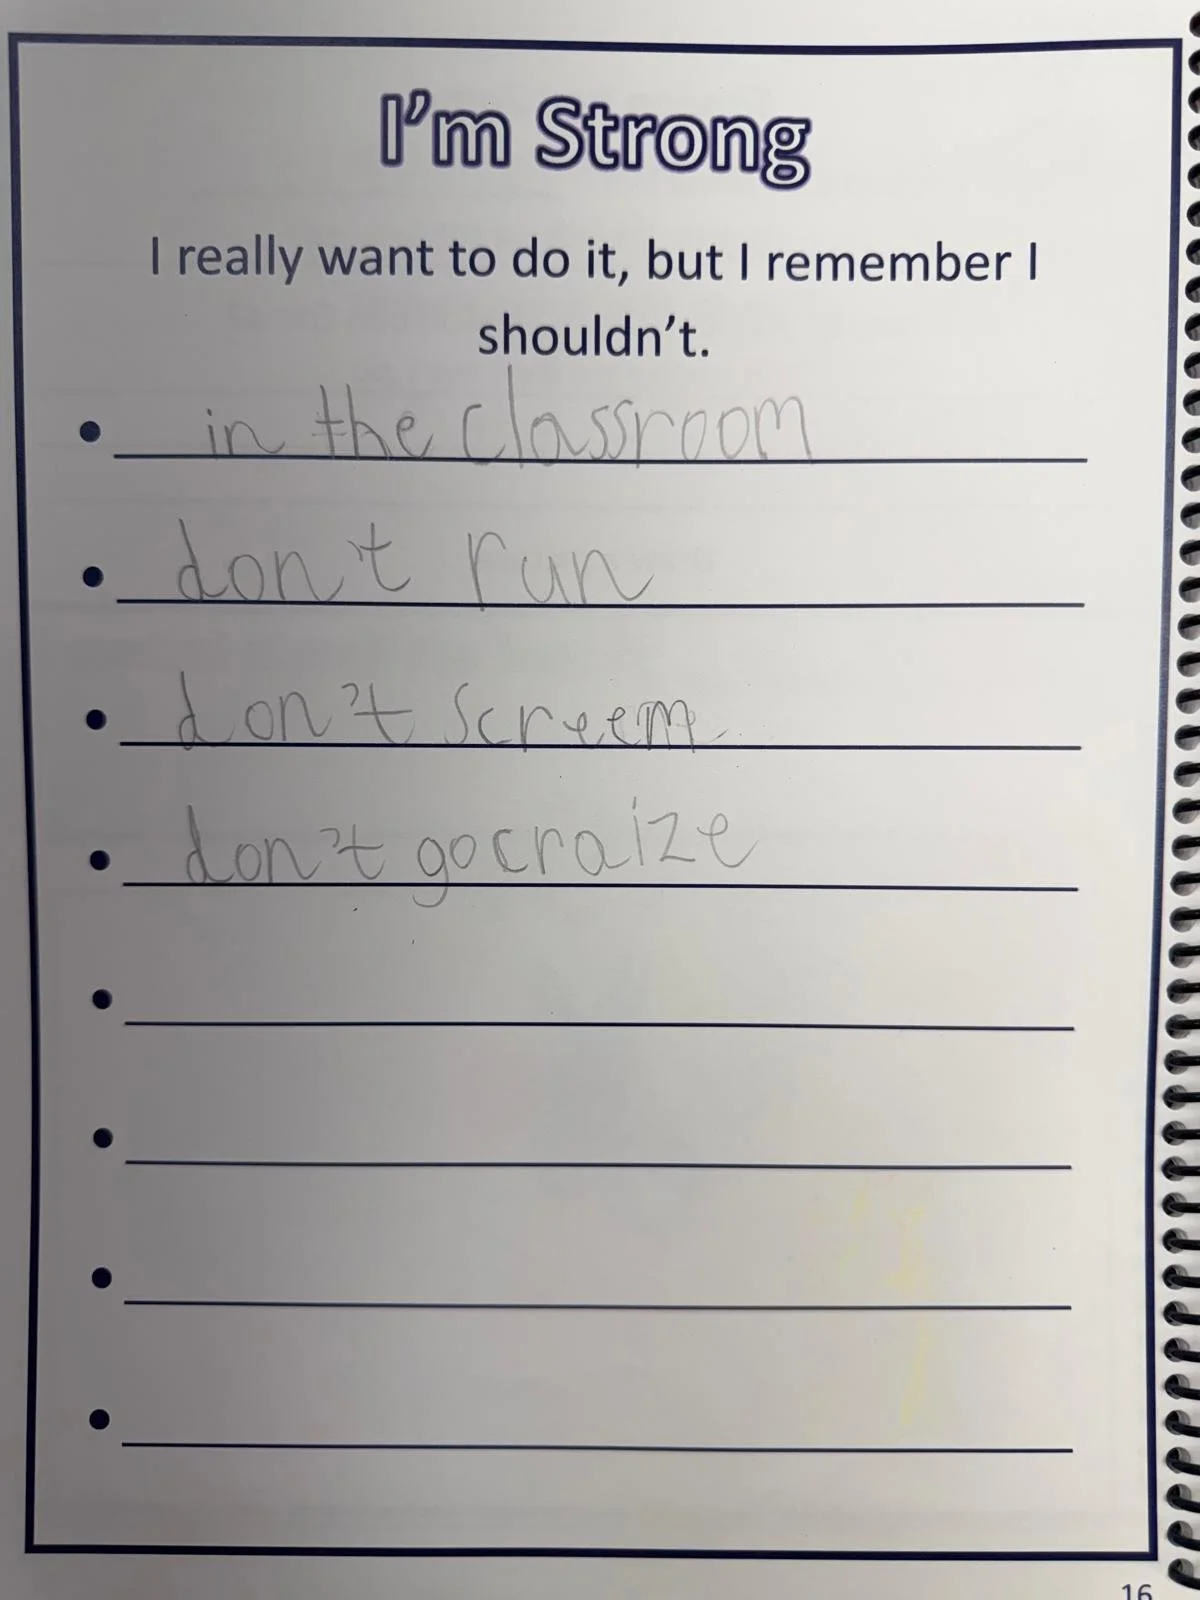 I'm Strong
I really want to do it, but I remember I
shouldn't.
• in the classroom
• don't run
• don't screem
• don't go craize
•
•
•
•
16